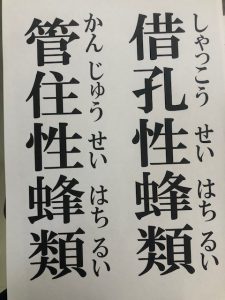 借孔性蜂類
しゃっこう せい はち るい
管住性蜂類
かん じゅう せい はち るい